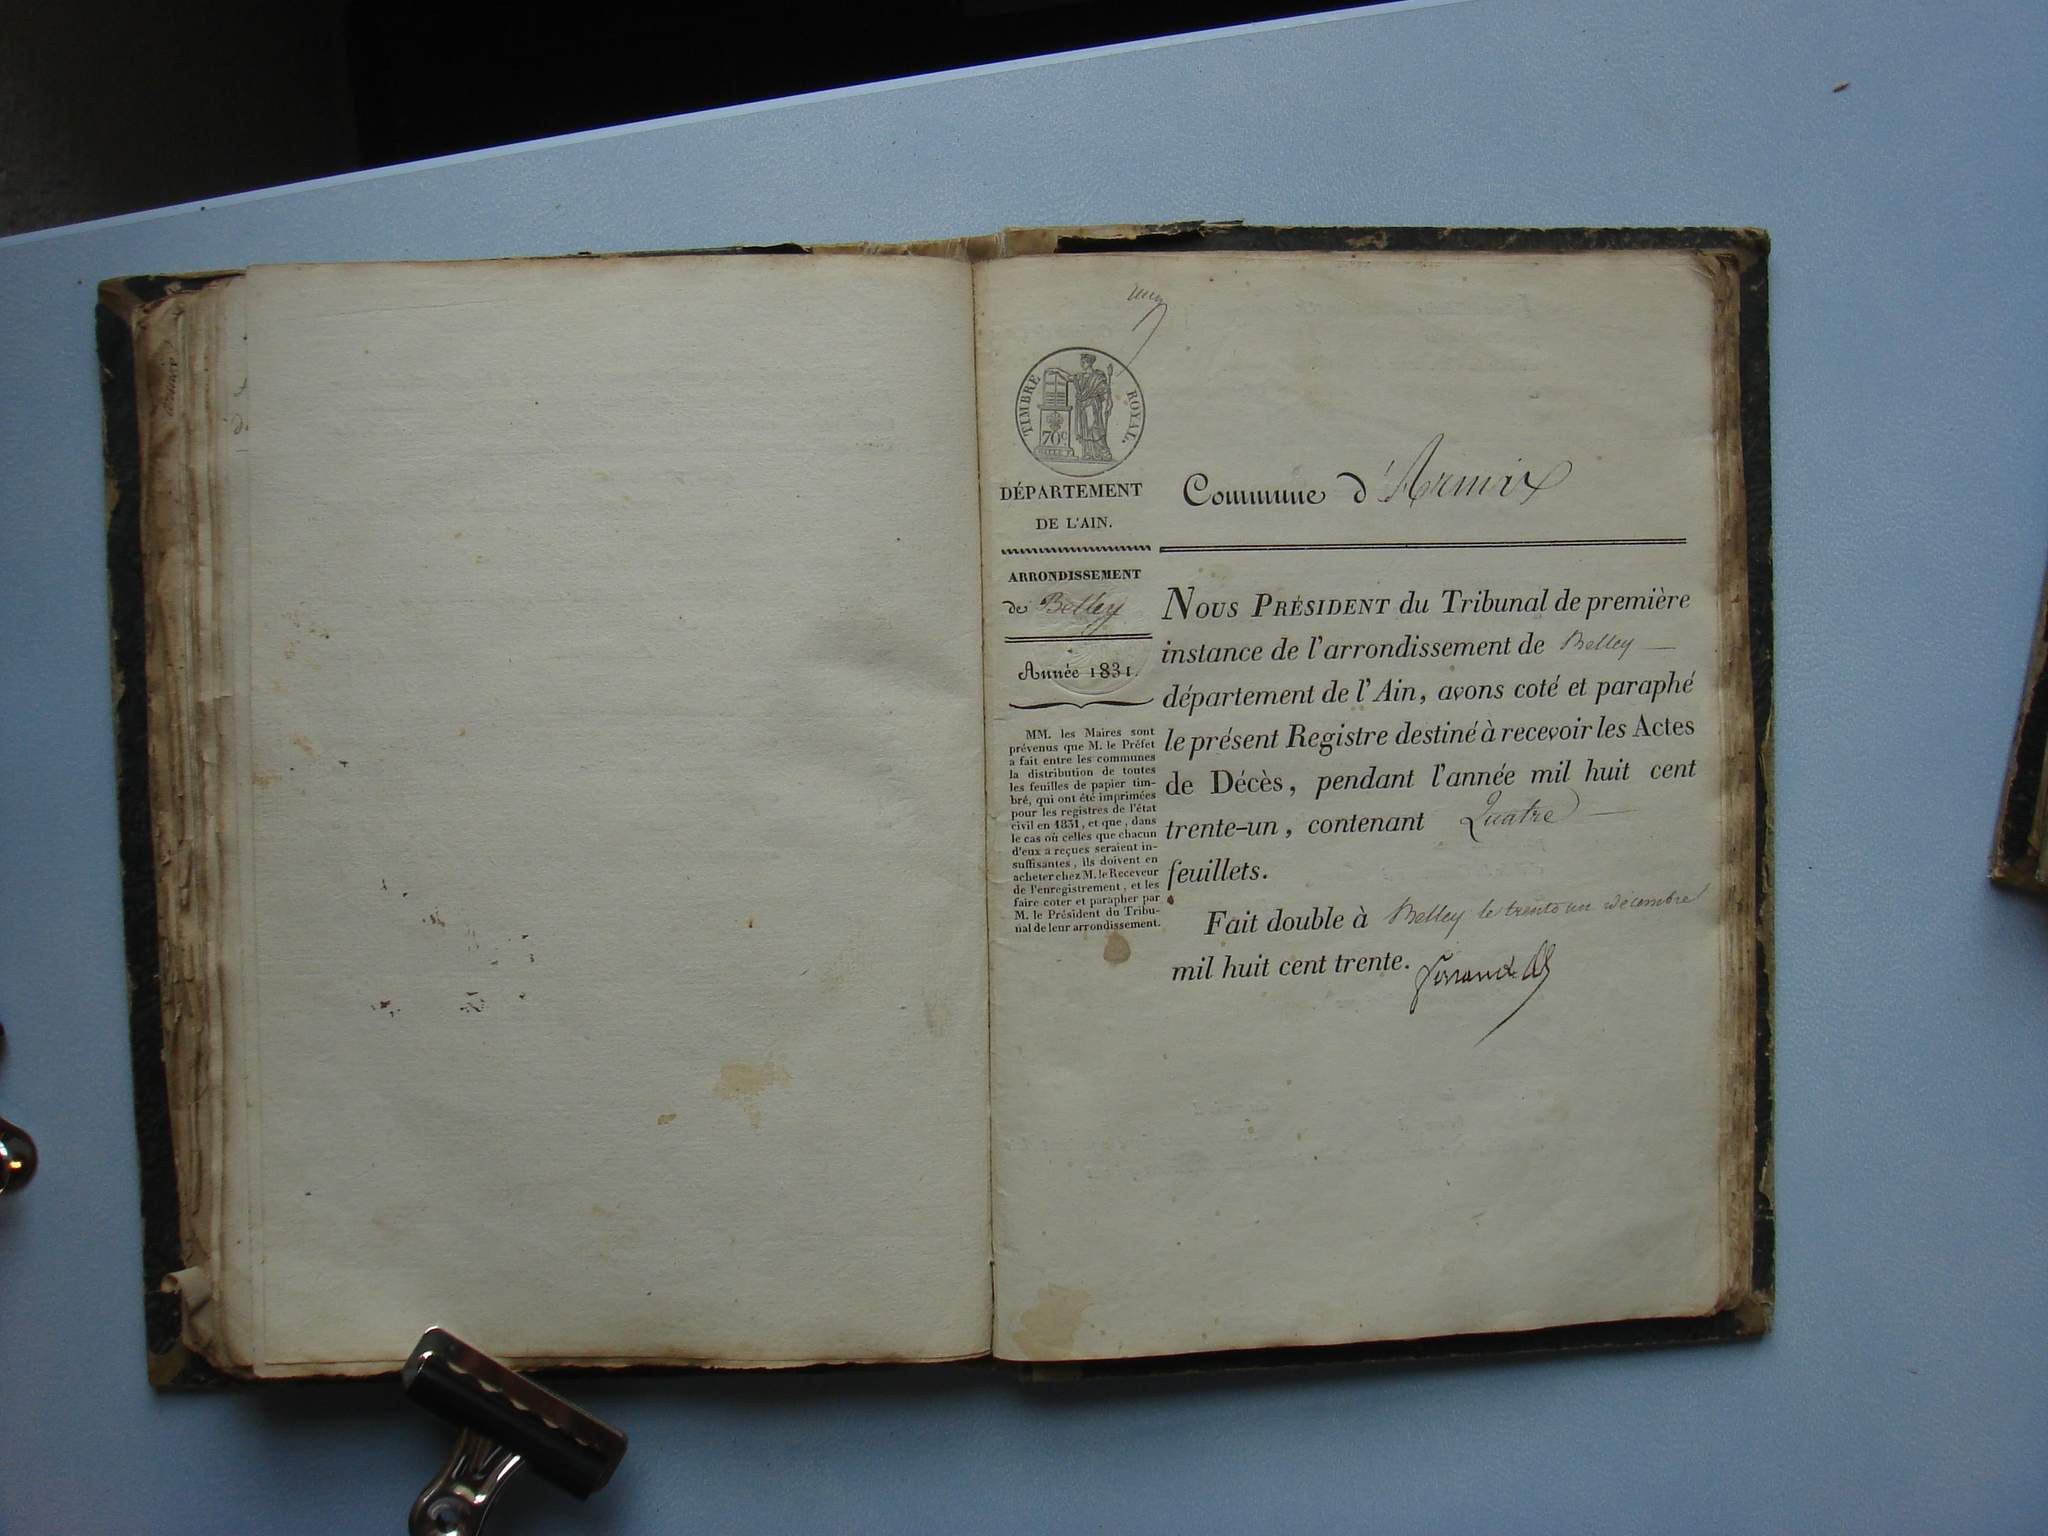 TIMBRE ROYAL.
70c
DÉPARTEMENT
DE L'AIN.
ARRONDISSEMENT
de Belley
Année 1831.
MM. les Maires sont
prévenus que M. le Préfet
a fait entre les communes
la distribution de toutes
les feuilles de papier tim-
bré, qui ont été imprimées
pour les registres de l'état
civil en 1831, et que, dans
le cas où celles que chacun
d'eux a reçues seraient in-
suffisantes, ils doivent en
acheter chez M. le Receveur
de l'enregistrement, et les
faire coter et parapher par
M. le Président du Tribu-
nal de leur arrondissement.
Commune d'Armix
NOUS PRÉSIDENT du Tribunal de première
instance de l'arrondissement de Belley
département de l'Ain, avons coté et paraphé
le présent Registre destiné à recevoir les Actes
de Décès, pendant l'année mil huit cent
trente-un, contenant Quatre
feuillets.
Fait double à Belley le trente un décembre
mil huit cent trente.